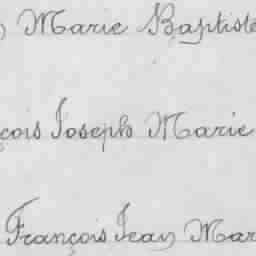 Marie Baptiste
çois Joseph Marie
François Jean Mar